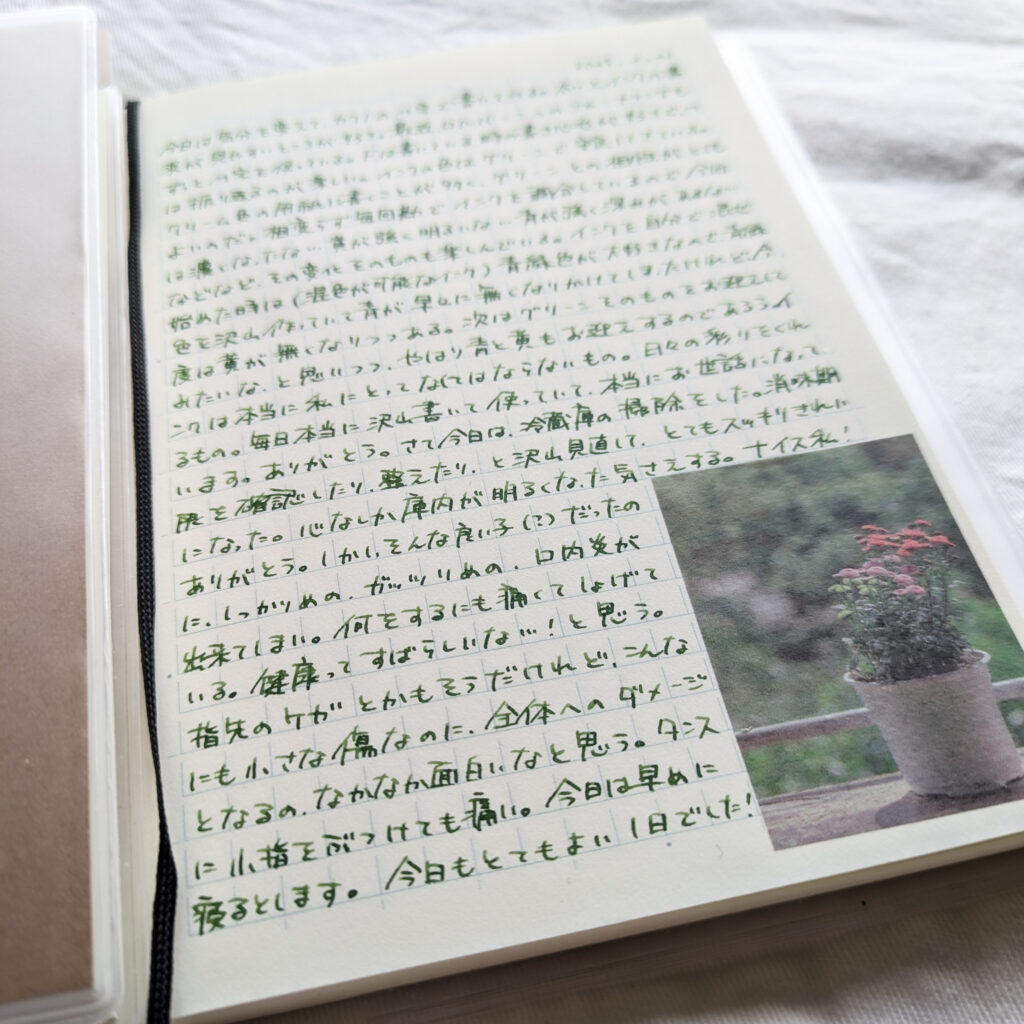 今日は気分を変えて、カクノの
は振り返るのが楽しい。インクの色はグリーンで
クリーム色の用紙に書くことが多く、グリーンとの相性がとても
よいのだ。相変らず毎回私でインクを調合しているので今回
は濃くなったな…黄が強く明るいな…青が強く深みがあるな…
などなど、その変化そのものも楽しんでいる。インクを自分で混ぜ
始めた時は(混色が可能なインク)青緑色が大好きなので
色を沢山作っていて青が早々に無くなりかけてしまったけれど、今
度は黄が無くなりつつある。次はグリーンそのものをお迎えして
みたいな、と思いつつ、やはり青と黄もお迎えするのであろうイ
ンクは本当に私にとってなくてはならないもの。日々の彩りをくれ
るもの。毎日本当に沢山書いて使っていて、本当にお世話になって
います。ありがとう。さて今日は、冷蔵庫の掃除をした。消味期
限を確認したり、整えたり、と沢山見直して、とてもスッキリきれい
になった。心なしか庫内が明るくなった気さえする。ナイス私！
ありがとう。しかし、そんな良い子(?)だったの
に、しっかりめの、ガッツリめの、口内炎が
出来てしまい。何をするにも痛くてしょげて
いる。健康ってすばらしいな…！と思う。
指先のケガとかもそうだけれど、こんな
にも小さな傷なのに、全体へのダメージ
となるの、なかなか面白いなと思う。タンス
に小指をぶつけても痛い。今日は早めに
寝るとします。今日もとてもよい1日でした！